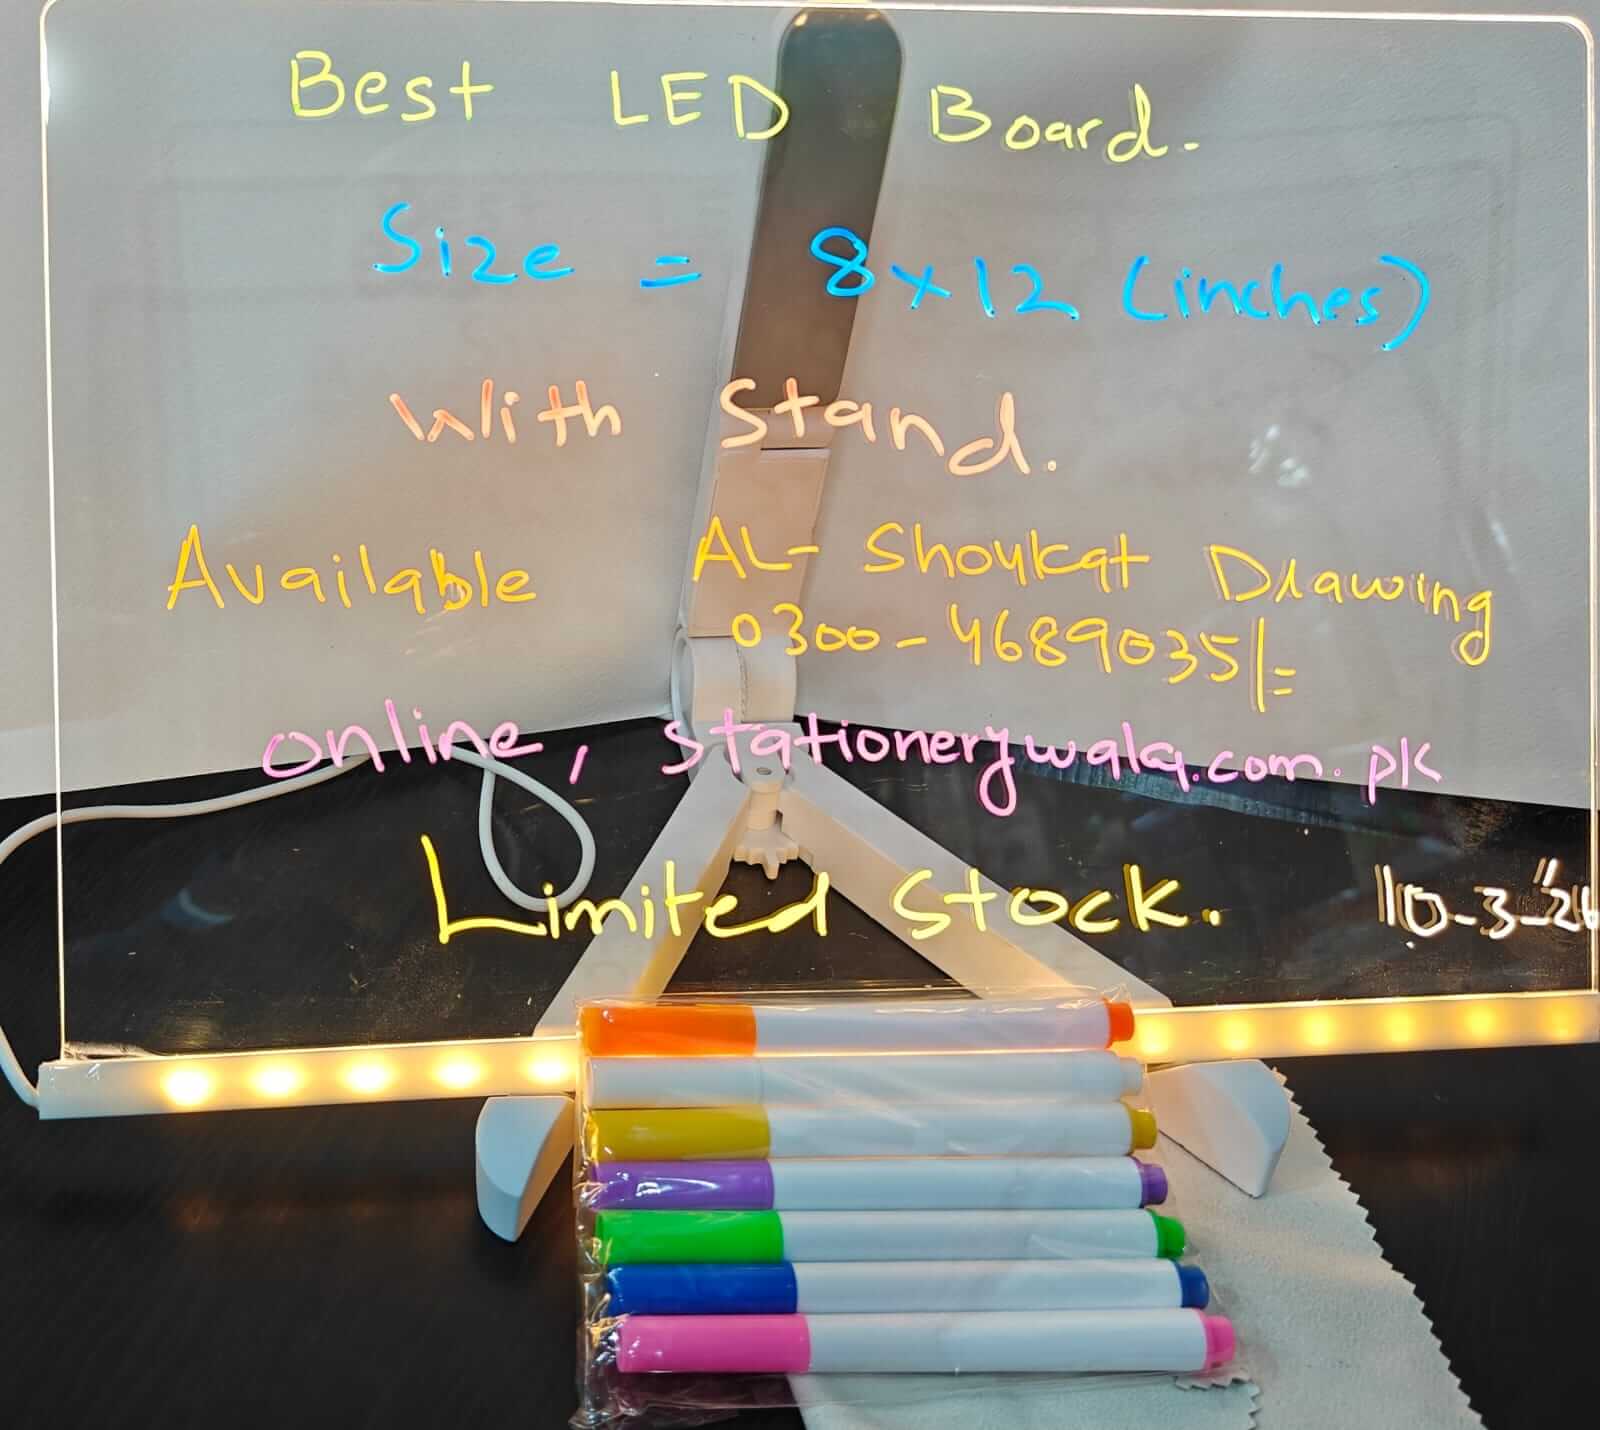 Best LED Board.
Size = 8x12 (inches)
With Stand.
Available AL- Shoukat Drawing
0300-4689035/=
online, stationerywala.com.pk
Limited Stock.
10-3-26